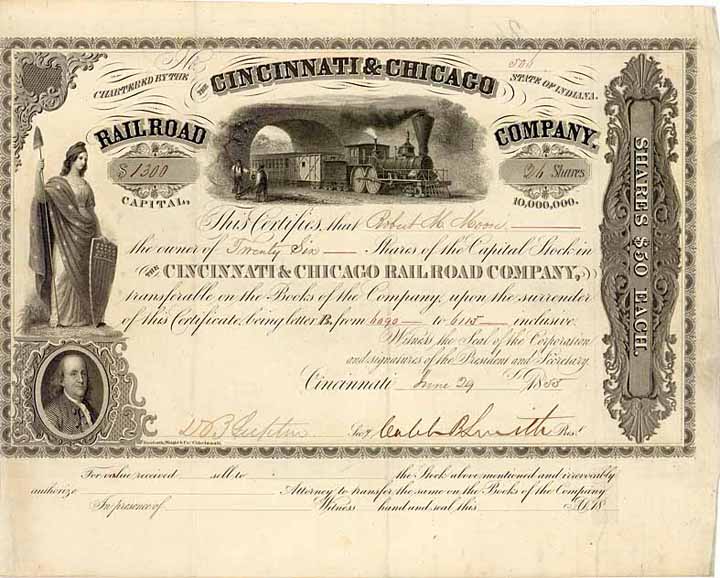 No. 506
CHARTERED BY THE STATE OF INDIANA.
THE CINCINNATI & CHICAGO
RAILROAD COMPANY.
$1300 26 Shares
CAPITAL, 10,000,000.
This Certifies, that Robert M. Moore
the owner of Twenty Six Shares of the Capital Stock in
THE CINCINNATI & CHICAGO RAILROAD COMPANY,
transferable on the Books of the Company, upon the surrender
of this Certificate, being letter B, from 6090 to 6115 inclusive.
Witness the Seal of the Corporation
and signatures of the President and Secretary.
Cincinnati June 29 1855
Secy. Caleb B. Smith Prest.
SHARES $50 EACH.
For value received sell to the Stock above mentioned and irrevocably
authorize Attorney to transfer the same on the Books of the Company
In presence of Witness hand and seal this A.D. 18